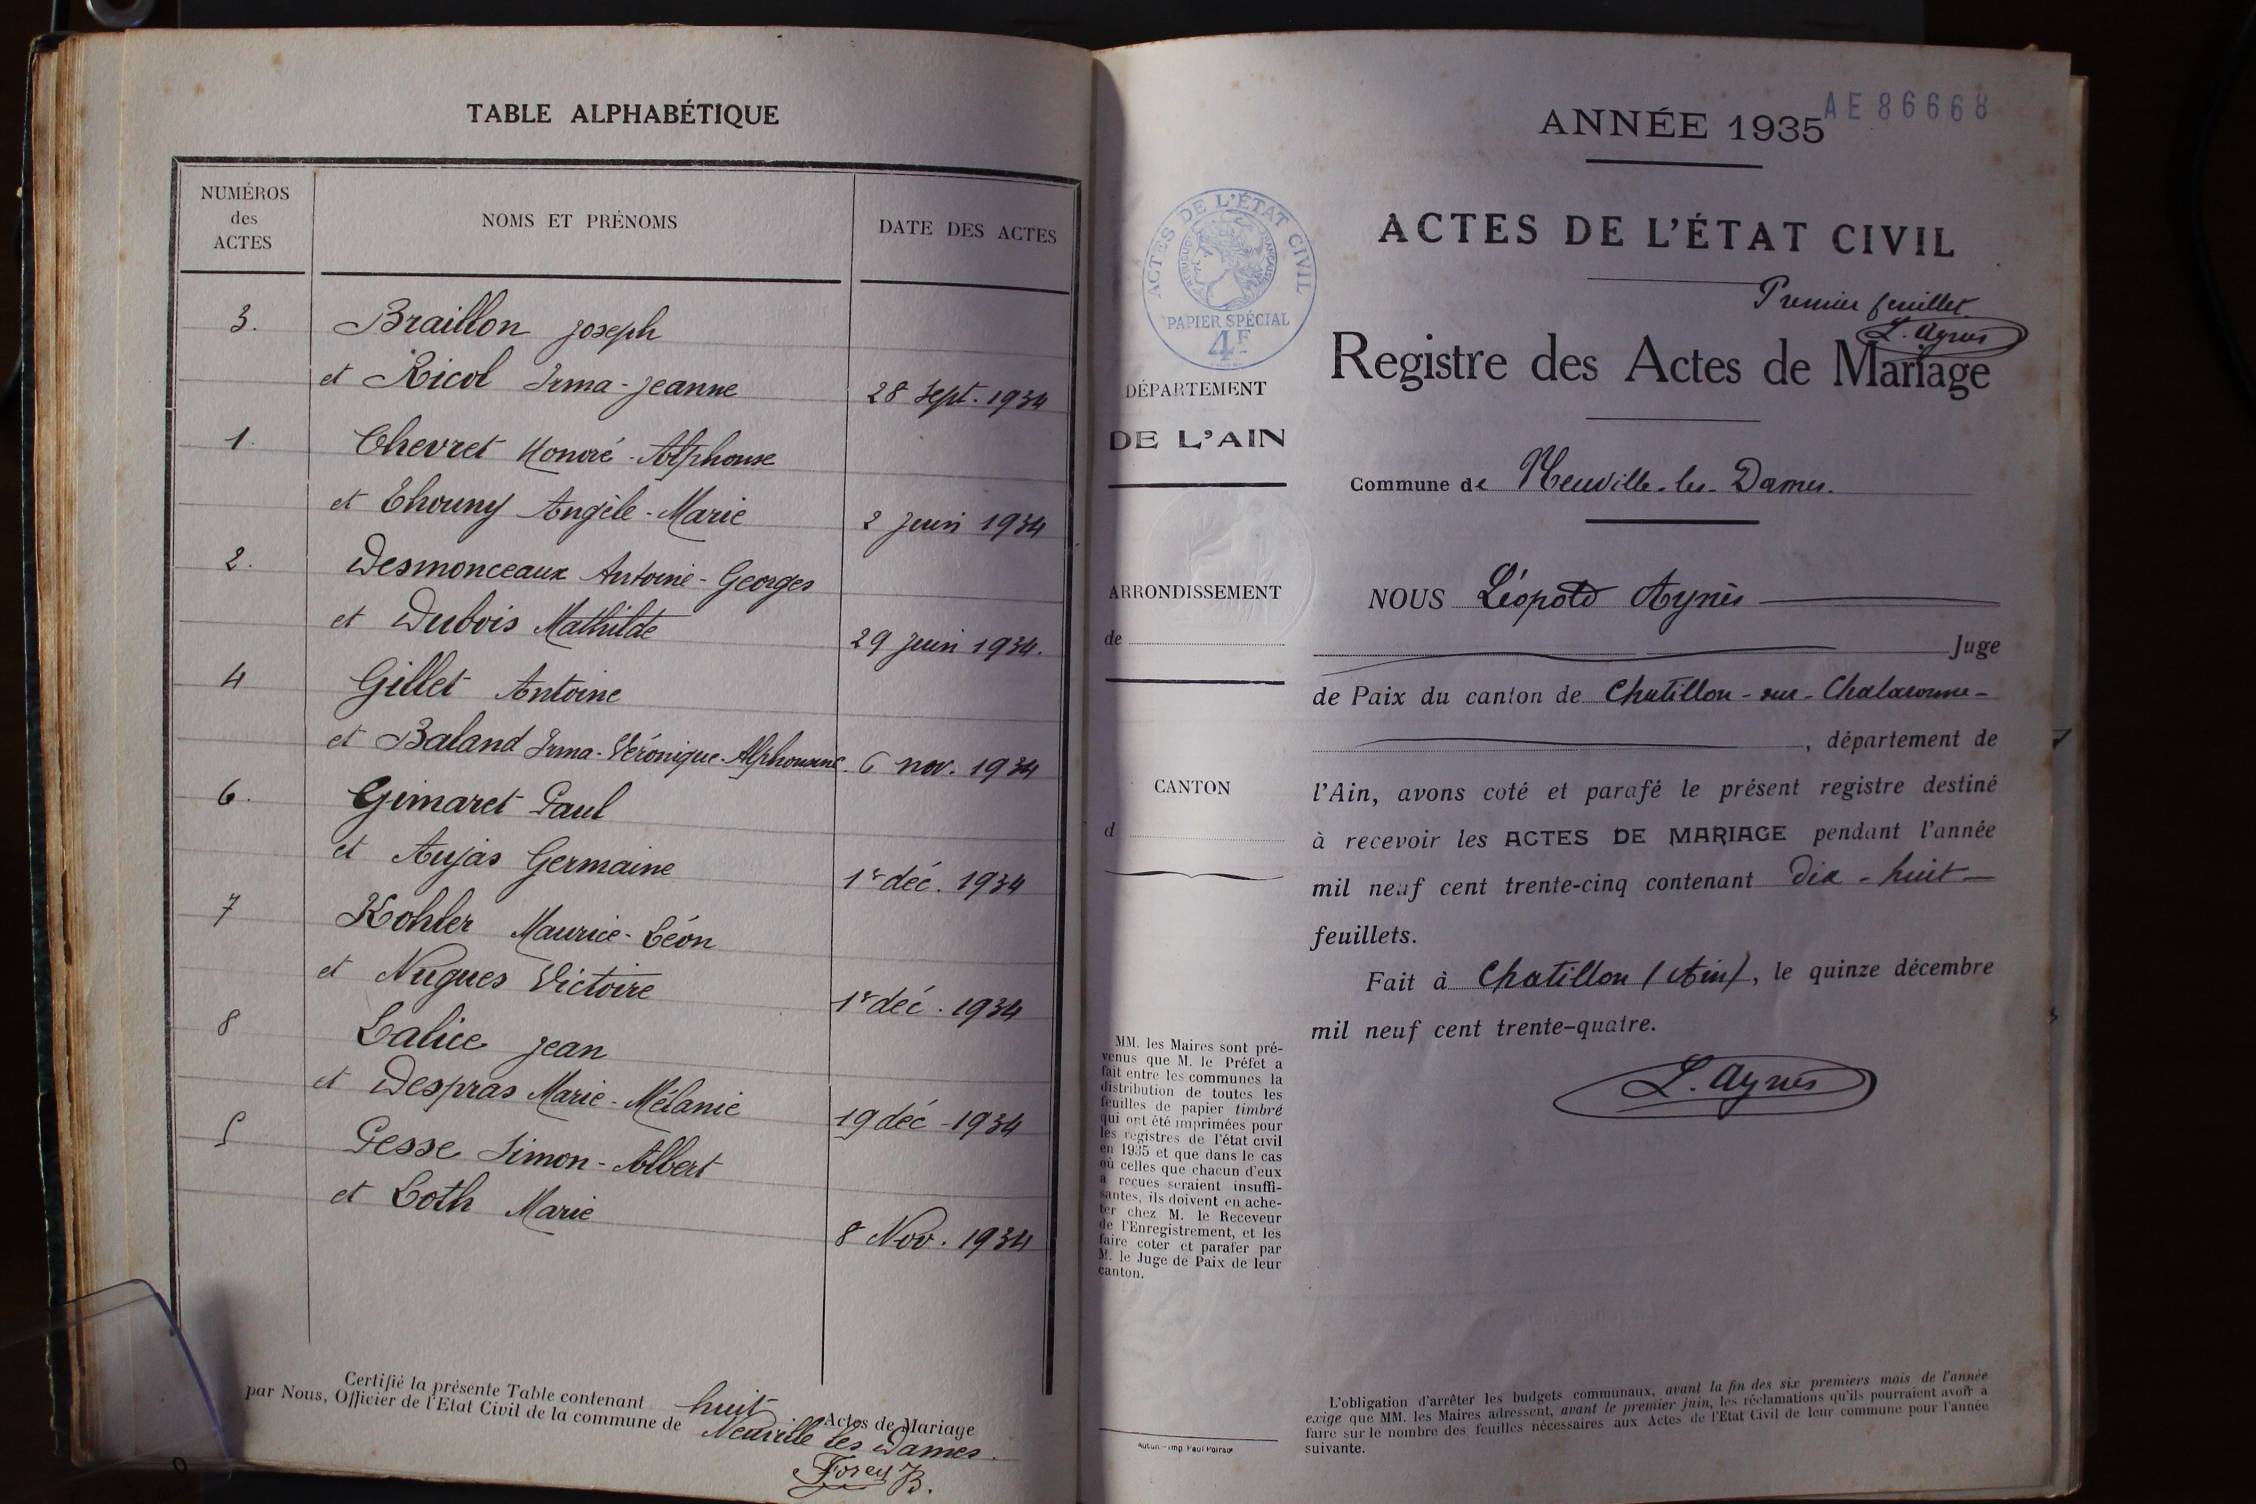 TABLE ALPHABÉTIQUE
NUMÉROS
des
ACTES
NOMS ET PRÉNOMS
DATE DES ACTES
3. Braillon Joseph
et Ricol Irma-Jeanne 28 Sept. 1934
1. Chevret Honoré-Alphonse
et Thouny Angèle-Marie 2 Juin 1934
2. Desmonceaux Antoine-Georges
et Dubois Mathilde 29 Juin 1934.
4 Gillet Antoine
et Baland Irma-Véronique-Alphonsine 6 nov. 1934
6. Gimaret Paul
et Aujas Germaine 1er déc. 1934
7 Kohler Maurice-Léon
et Nugues Victoire 1er déc. 1934
8 Lalice Jean
et Despras Marie-Mélanie 19 déc - 1934
5 Pesse Simon-Albert
et Loth Marie 8 Nov. 1934
Certifié la présente Table contenant huit Actes de Mariage
par Nous, Officier de l'Etat Civil de la commune de Neuville les Dames.
Forey B.
AE 86668
ANNÉE 1935
ACTES DE L'ÉTAT CIVIL
Premier feuillet
L. Aynès
Registre des Actes de Mariage
Commune de Neuville-les-Dames.
ACTES DE L'ÉTAT CIVIL
RÉPUBLIQUE FRANÇAISE
PAPIER SPÉCIAL
4F
DÉPARTEMENT
DE L'AIN
ARRONDISSEMENT
de
CANTON
d
MM. les Maires sont pré-
venus que M. le Préfet a
fait entre les communes la
distribution de toutes les
feuilles de papier timbré
qui ont été imprimées pour
les registres de l'état civil
en 1935 et que dans le cas
où celles que chacun d'eux
a reçues seraient insuffi-
santes, ils doivent en ache-
ter chez M. le Receveur
de l'Enregistrement, et les
faire coter et parafer par
M. le Juge de Paix de leur
canton.
Autun - Imp Paul Poirson
NOUS Léopold Aynès
Juge
de Paix du canton de Chatillon-sur-Chalaronne-
, département de
l'Ain, avons coté et parafé le présent registre destiné
à recevoir les ACTES DE MARIAGE pendant l'année
mil neuf cent trente-cinq contenant dix-huit
feuillets.
Fait à Chatillon (Ain), le quinze décembre
mil neuf cent trente-quatre.
L. Aynès
L'obligation d'arrêter les budgets communaux, avant la fin des six premiers mois de l'année
exige que MM. les Maires adressent, avant le premier juin, les réclamations qu'ils pourraient avoir a
faire sur le nombre des feuilles nécessaires aux Actes de l'Etat Civil de leur commune pour l'année
suivante.